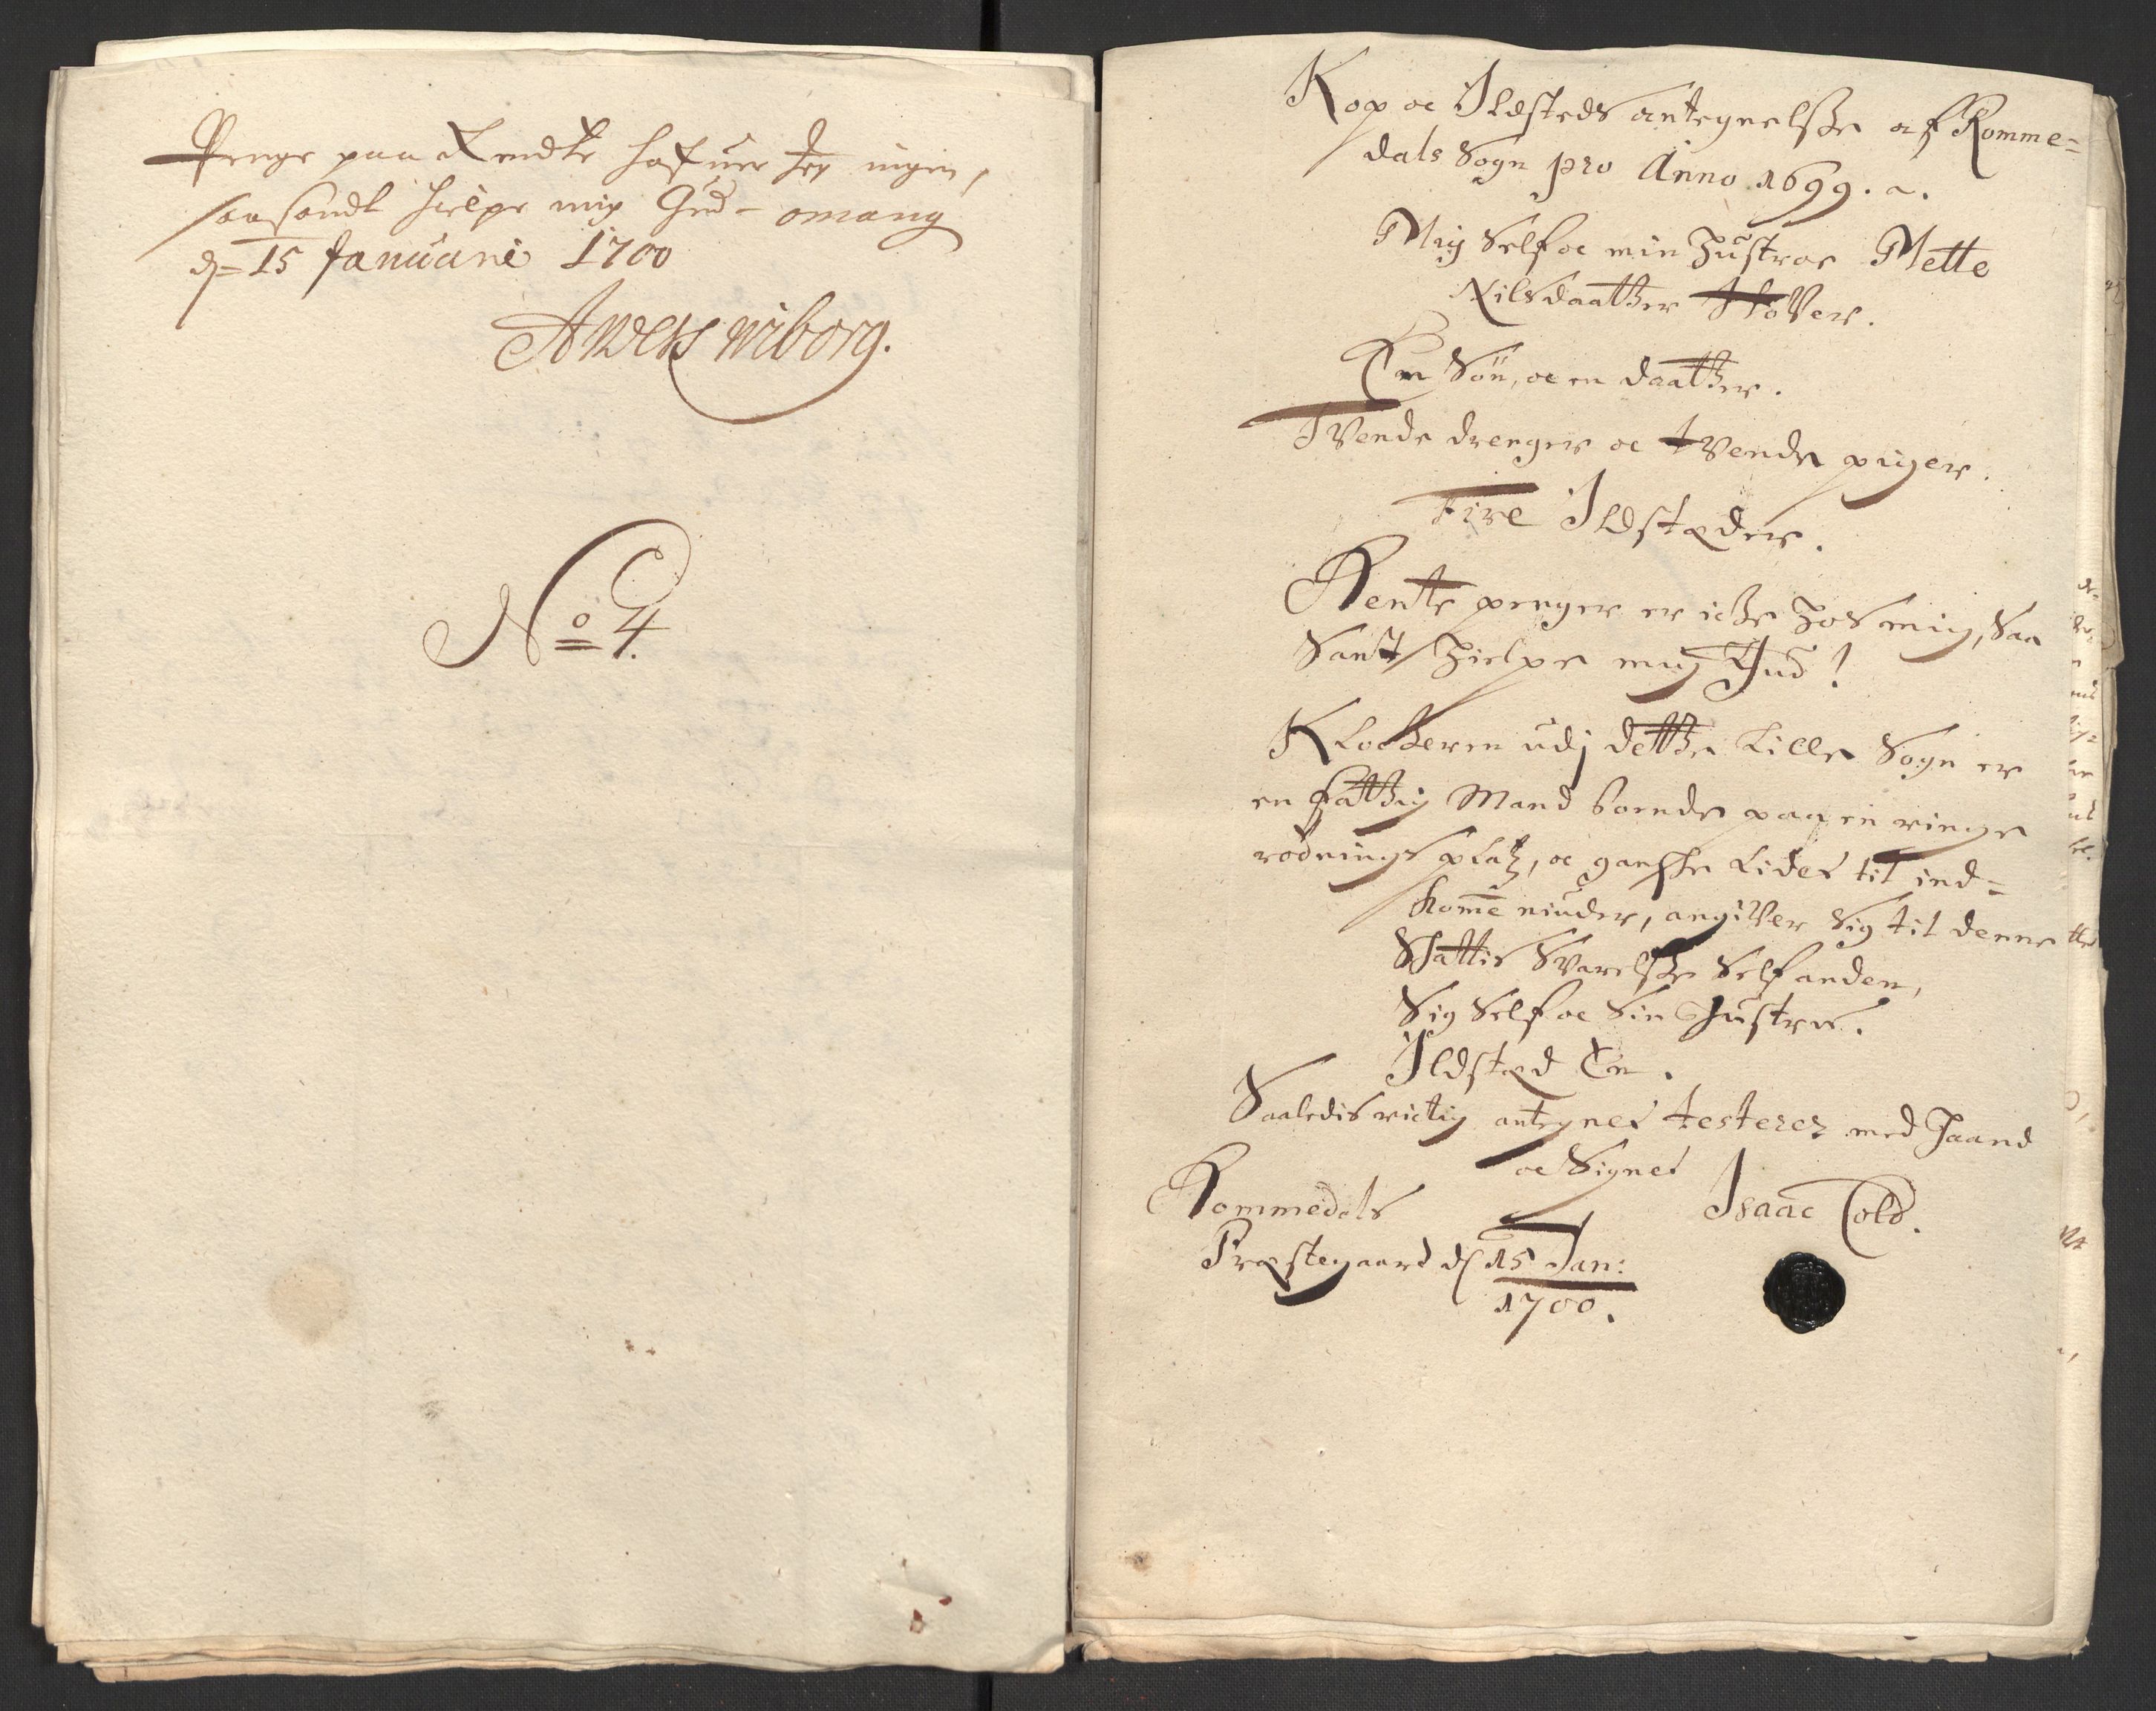 Penge paa Rendte hafuer Jeg ingen,
saa sandt hielpe mig Gud - omang
d= 15 Januarii 1700
Anders wiborg.
No 4.
Kop oc Ildsteds antegnelsse af Romme=
dals Sogn pro Anno 1699.
Mig Self oc min Hustroe Mette
Nilsdaatter
En Sön, oc en daatter.
Tvende drenger oc tvende piger.
Fire Ildstæder.
Rente penger er icke hos mig, Saa
Sant hielpe mig Gud!
Klockeren udj dette Lille Sogn er
en fattig Mand boende paa en ringe
rödnings platz, oc ganske Lidet til ind=
komme niuder, angiver Sig til denne
Skattis Svarelsse Self anden,
Sig Self oc Sin Hustroe.
Ildstæd En.
Saaledis rictig antegnet testerer med Haand
oc Signet
Rommedals Isaac Cold.
Præstegaard d 15 Jan:
1700.